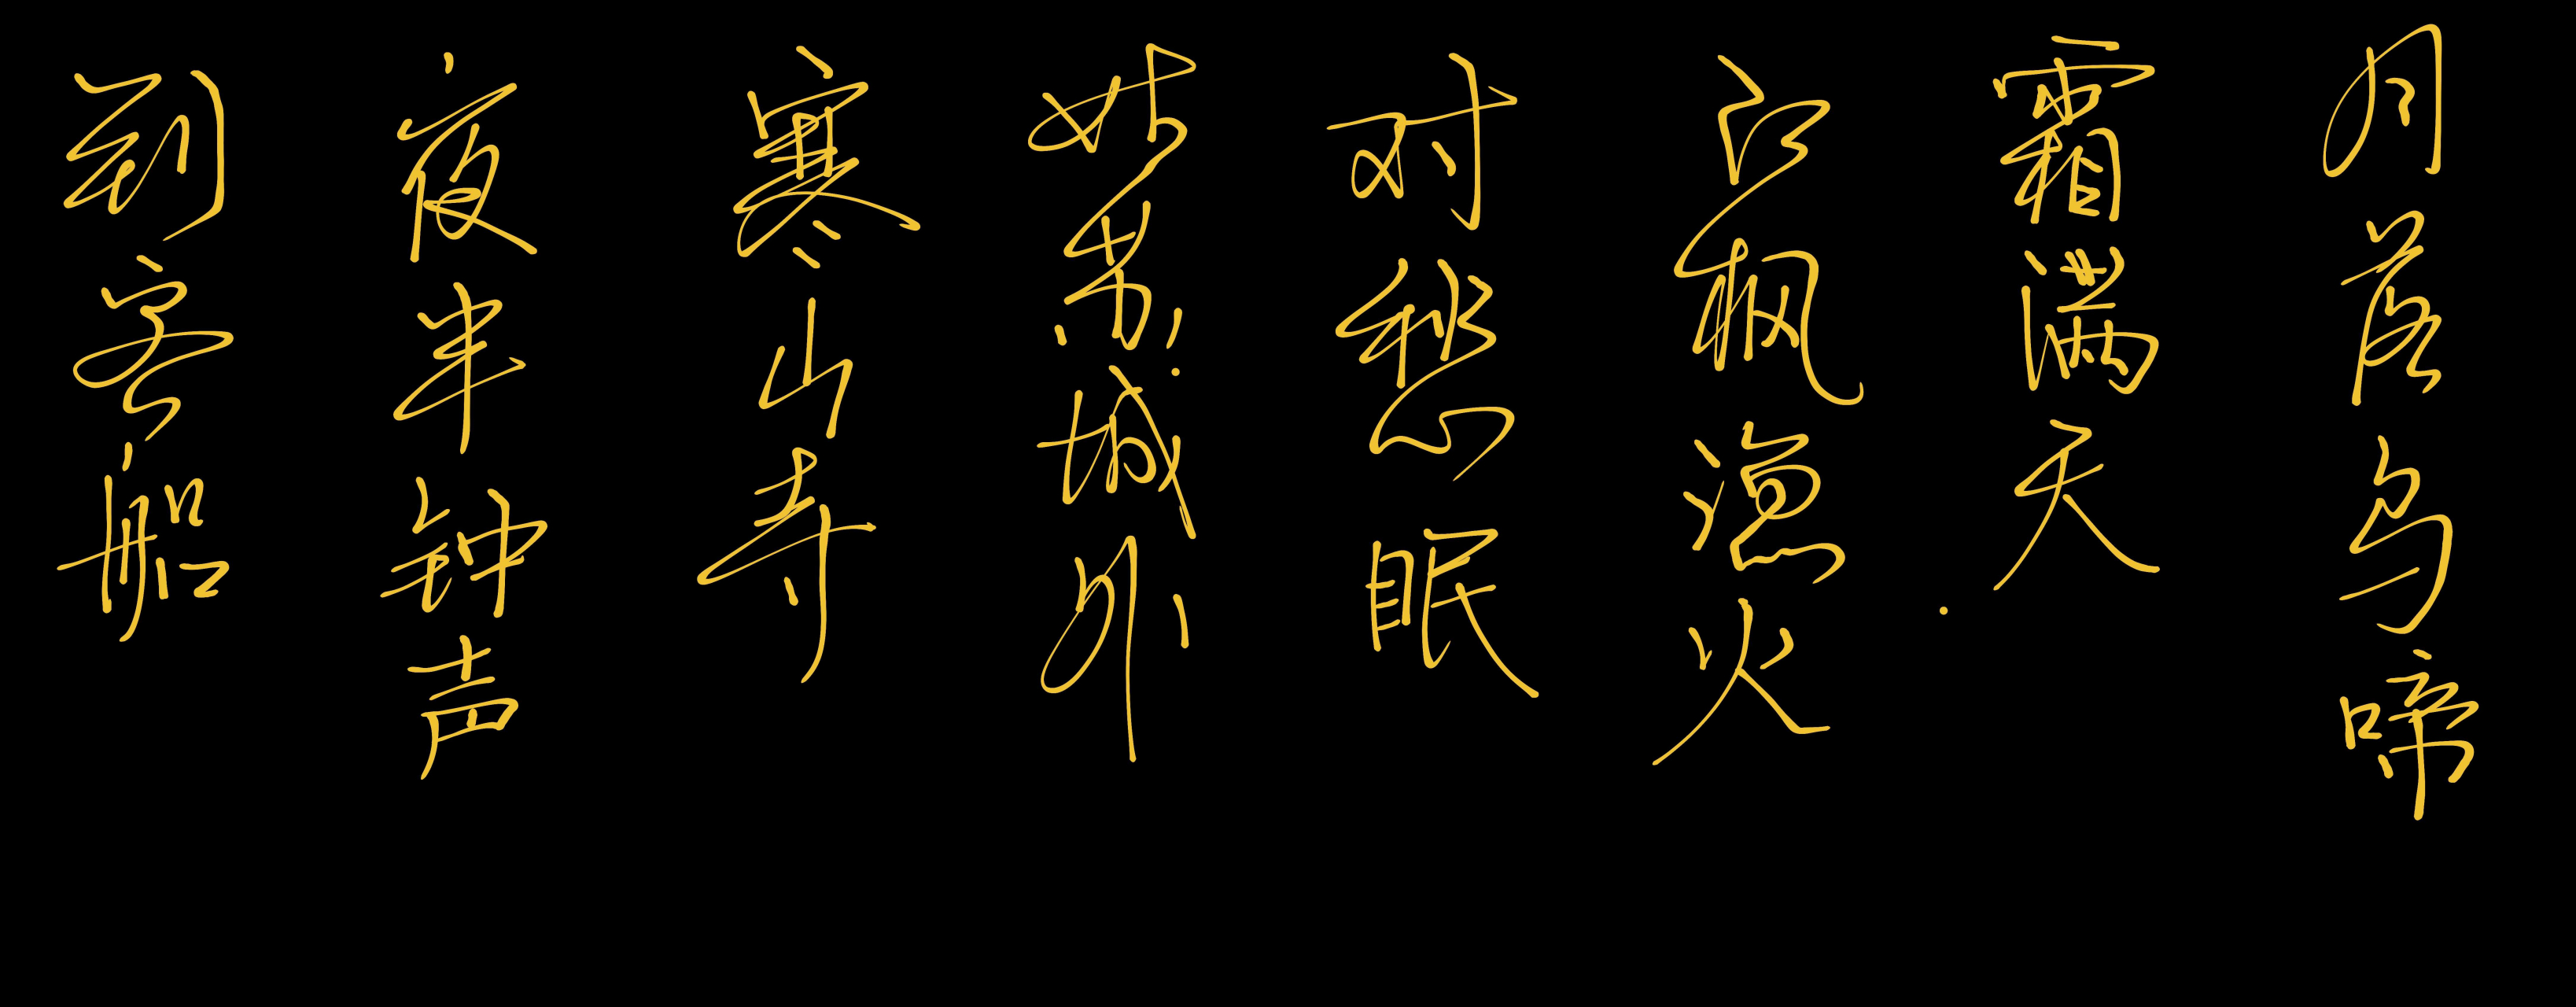 月落乌啼
霜满天
江枫渔火
对愁眠
姑苏城外
寒山寺
夜半钟声
到客船